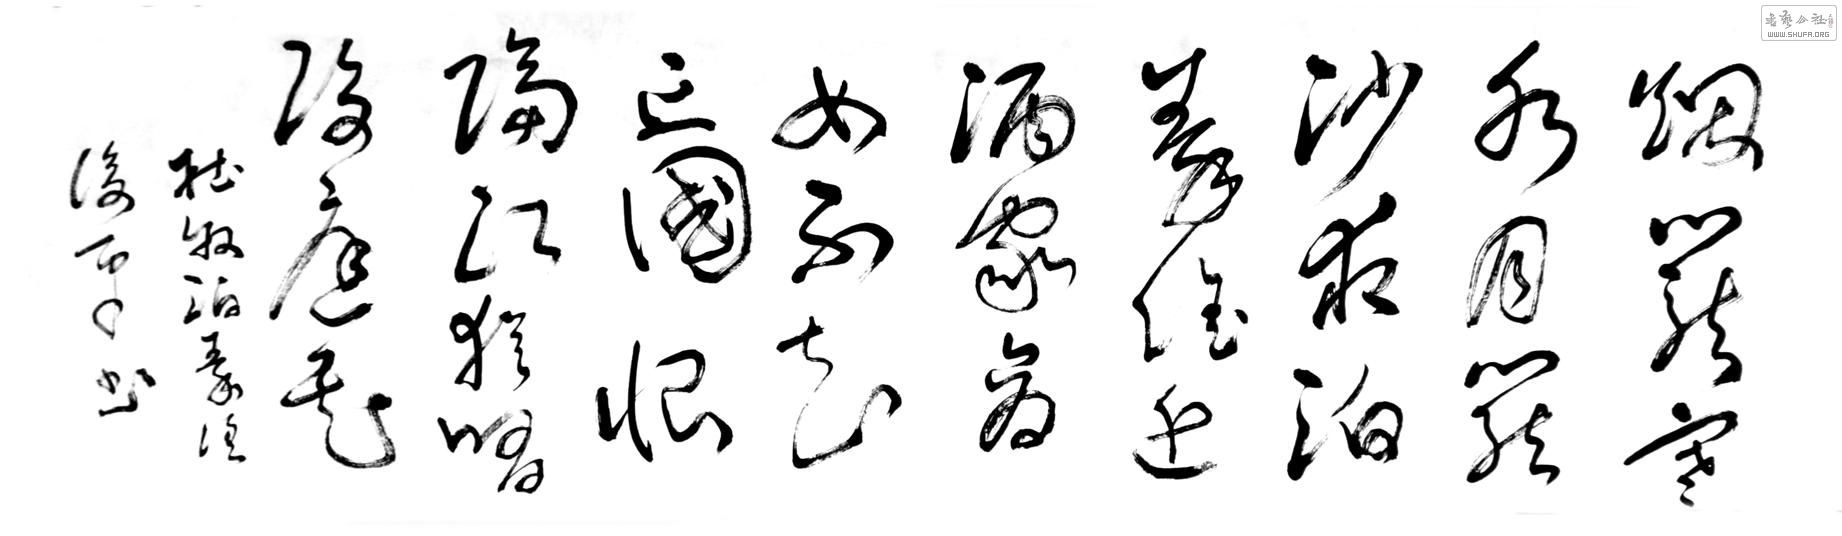 烟籠寒
水月籠
沙夜泊
秦淮近
酒家商
女不知
亡國恨
隔江猶唱
後庭花
杜牧泊秦淮
书
書藝公社
WWW.SHUFA.ORG